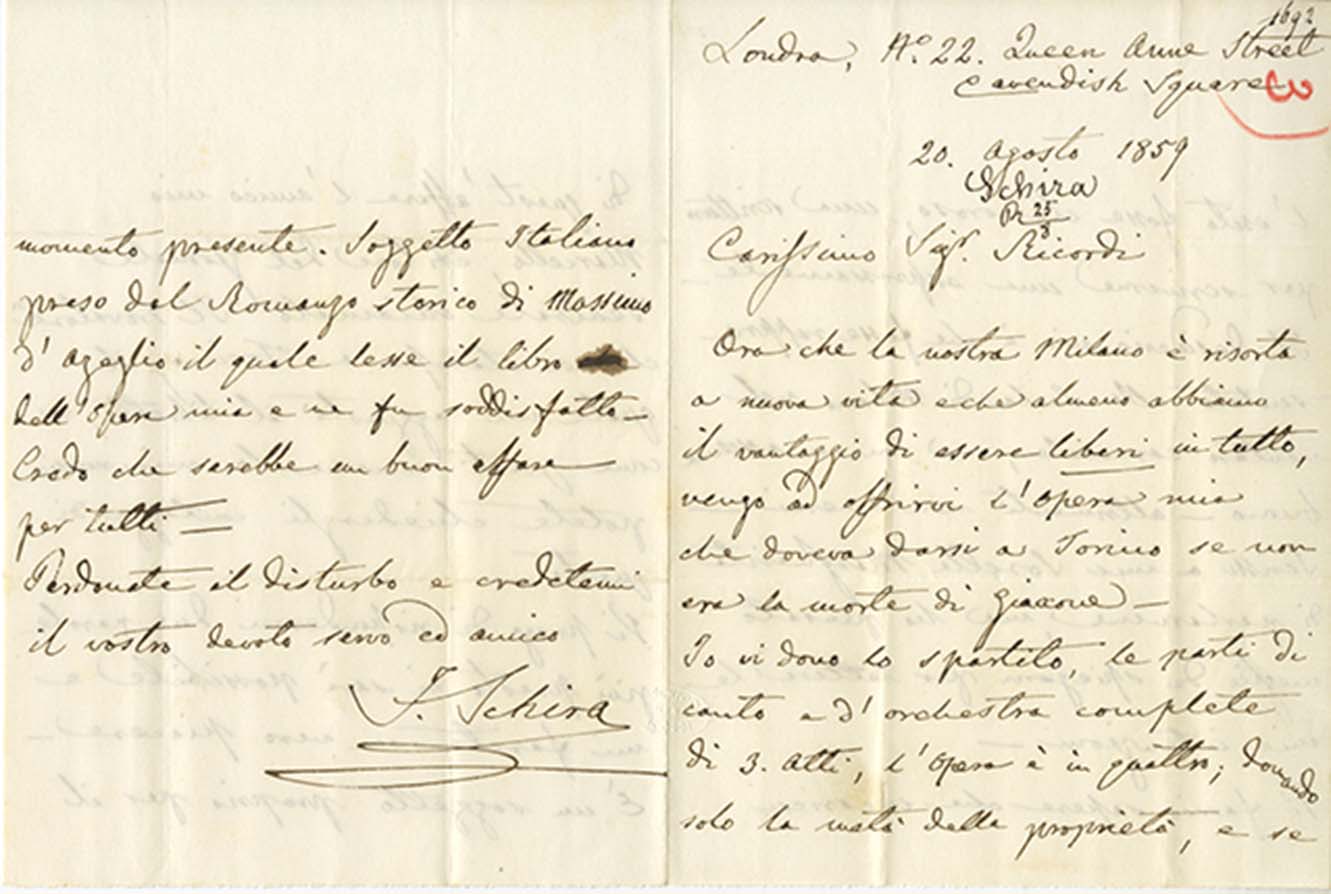 1692
3
Londra, Nº. 22. Queen Anne Street
Cavendish Square
20. Agosto 1859
Schira
R 25/8
Carissimo Sigr. Ricordi
Ora che la nostra Milano è risorta
a nuova vita e che almeno abbiamo
il vantaggio di essere liberi in tutto,
vengo ad offrirvi l'Opera mia
che doveva darsi a Torino se non
era la morte di Giaccone —
Io vi dono lo spartito, le parti di
canto e d'orchestra complete
di 3. Atti, l'Opera è in quattro; domando
solo la metà della proprietà, e se
momento presente. Soggetto Italiano
preso dal Romanzo storico di Massimo
d'Azeglio il quale lesse il libro
dell'Opera mia e ne fu soddisfatto —
Credo che sarebbe un buon affare
per tutti —
Perdonate il disturbo e credetemi
il vostro devoto servo ed amico
F. Schira